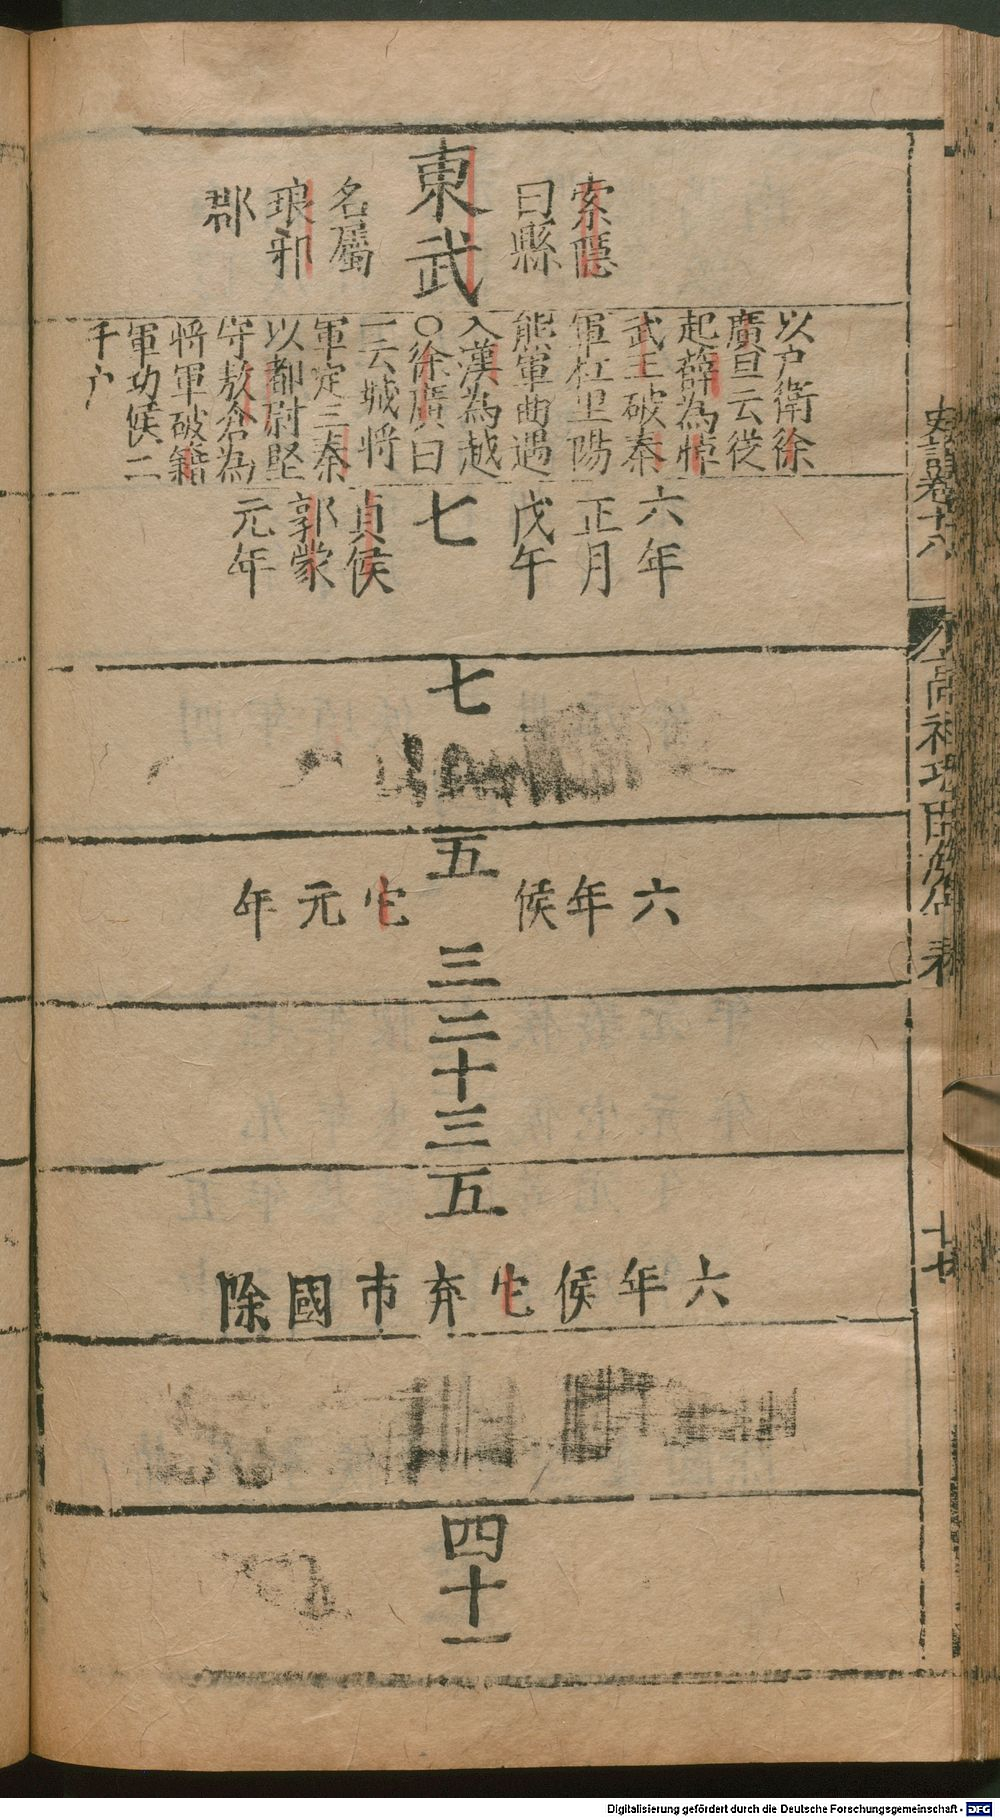 史記卷十八
高祖功臣侯年表
東武
索隱
曰縣
名屬
琅邪
郡
以户衛徐
廣曰云從
起薛為悼
武王破秦
軍杠里陽
熊軍曲遇
入漢為越
〇徐廣曰
一云城將
軍定三秦
以都尉堅
守敖倉為
將軍破籍
軍功侯二
千户
六年
正月
戊午
七
貞侯
郭蒙
元年
七
五
六年侯
它元年
三
二十三
五
六年侯它弃市國除
四十一
Digitalisierung gefördert durch die Deutsche Forschungsgemeinschaft - DFG